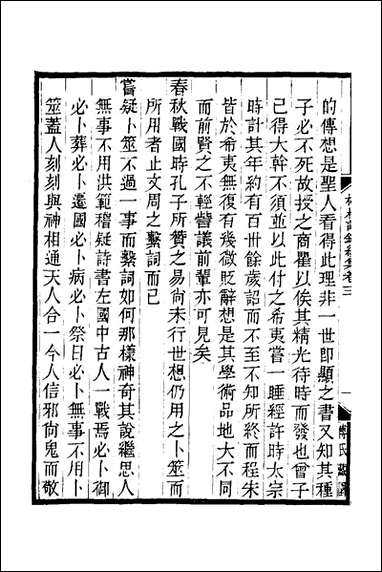 的傳想是聖人看得此理非一世即顯之書又知其種
子必不死故授之商瞿以俟其精光待時而發也曾子
已得大幹不須並以此付之希夷嘗一睡經許時太宗
時計其年約有百世餘歲詔而不至不知所終而程朱
皆於希夷無復有幾微貶辭想是其學術品地大不同
而前賢之不輕訾議前輩亦可見矣
春秋戰國時孔子所贊之易尚未行世想仍用之卜筮而
所用者止文周之繫詞而已
嘗疑卜筮不過一事而繫詞如何那樣神奇其說繼思人
無事不用洪範稽疑詩書左國中古人一戰焉必卜御
必卜葬必卜遷國必卜病必卜祭日必卜無事不用卜
筮蓋人刻刻與神相通天人合一今人信邪尚鬼而敬